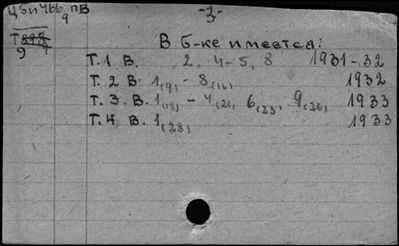 ЦБиЧЬЬ ПВ
9
-3-
Т
9
В Б-ке имеется:
Т. 1 В. 2, 4-5, 8 1931-32
Т. 2 В. 1(9) - 8(16) 1932
Т. 3. В. 1(18) - 4(21), 6(23), 9(26), 1933
Т. 4 В. 1(28) 1933